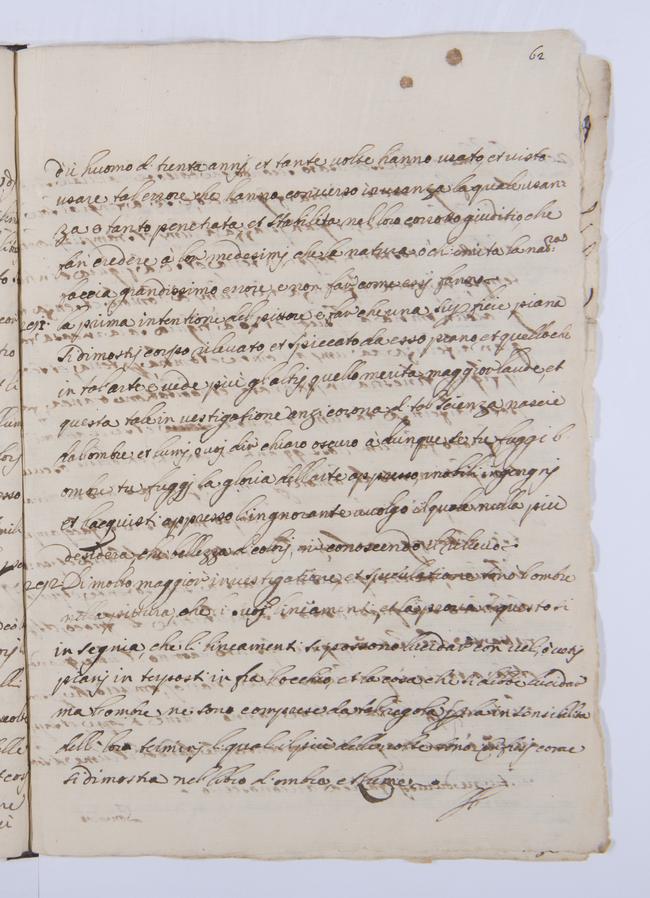 62
d'un huomo di trenta annj et tante volte hanno usato et visto
usare tal errore che l'anno converso in usanza la quale usan-
za è tanto penetrata et stabilita nel loro corrotto giuditio, che
fan credere a lor medesimj, che la natura ò chi imita la nat.ra
faccia grandissimo errore e non far come essj fanno
la prima intentione del pittore è far che una superficie piana
si dimostrj corpo rilevato et spiccato da esso piano et quello che
in tal arte eccede più gl'altrj quello merita maggior laude, et
questa tale investigatione anzi corona di tal scienza nascie
dal'ombre et lumj ò voi dir chiaro oscuro adunque se tu fuggi l'
ombre tu fuggj la gloria dell'arte appresso i nobili ingegnj
et l'acquisti appresso l'ingnorante volgo il quale nulla più
desidera che bellezza di colorj, non conoscendo il rilievo
Di molto maggior investigatione, et speculatione sono l'ombre
nella pittura, che i suoj liniamenti, et la prova di questo si
insegnia che li lineamenti si possono lucidar con veli, ò vetrj
pianj interposti infra l'occhio, et la cosa che si debbe lucidar
ma l'ombre ne sono comprese da tal regola per la insensibilità
delli loro terminj li quali il più delle volte sono confusi, come
si dimostra nel libro d'ombra e lume